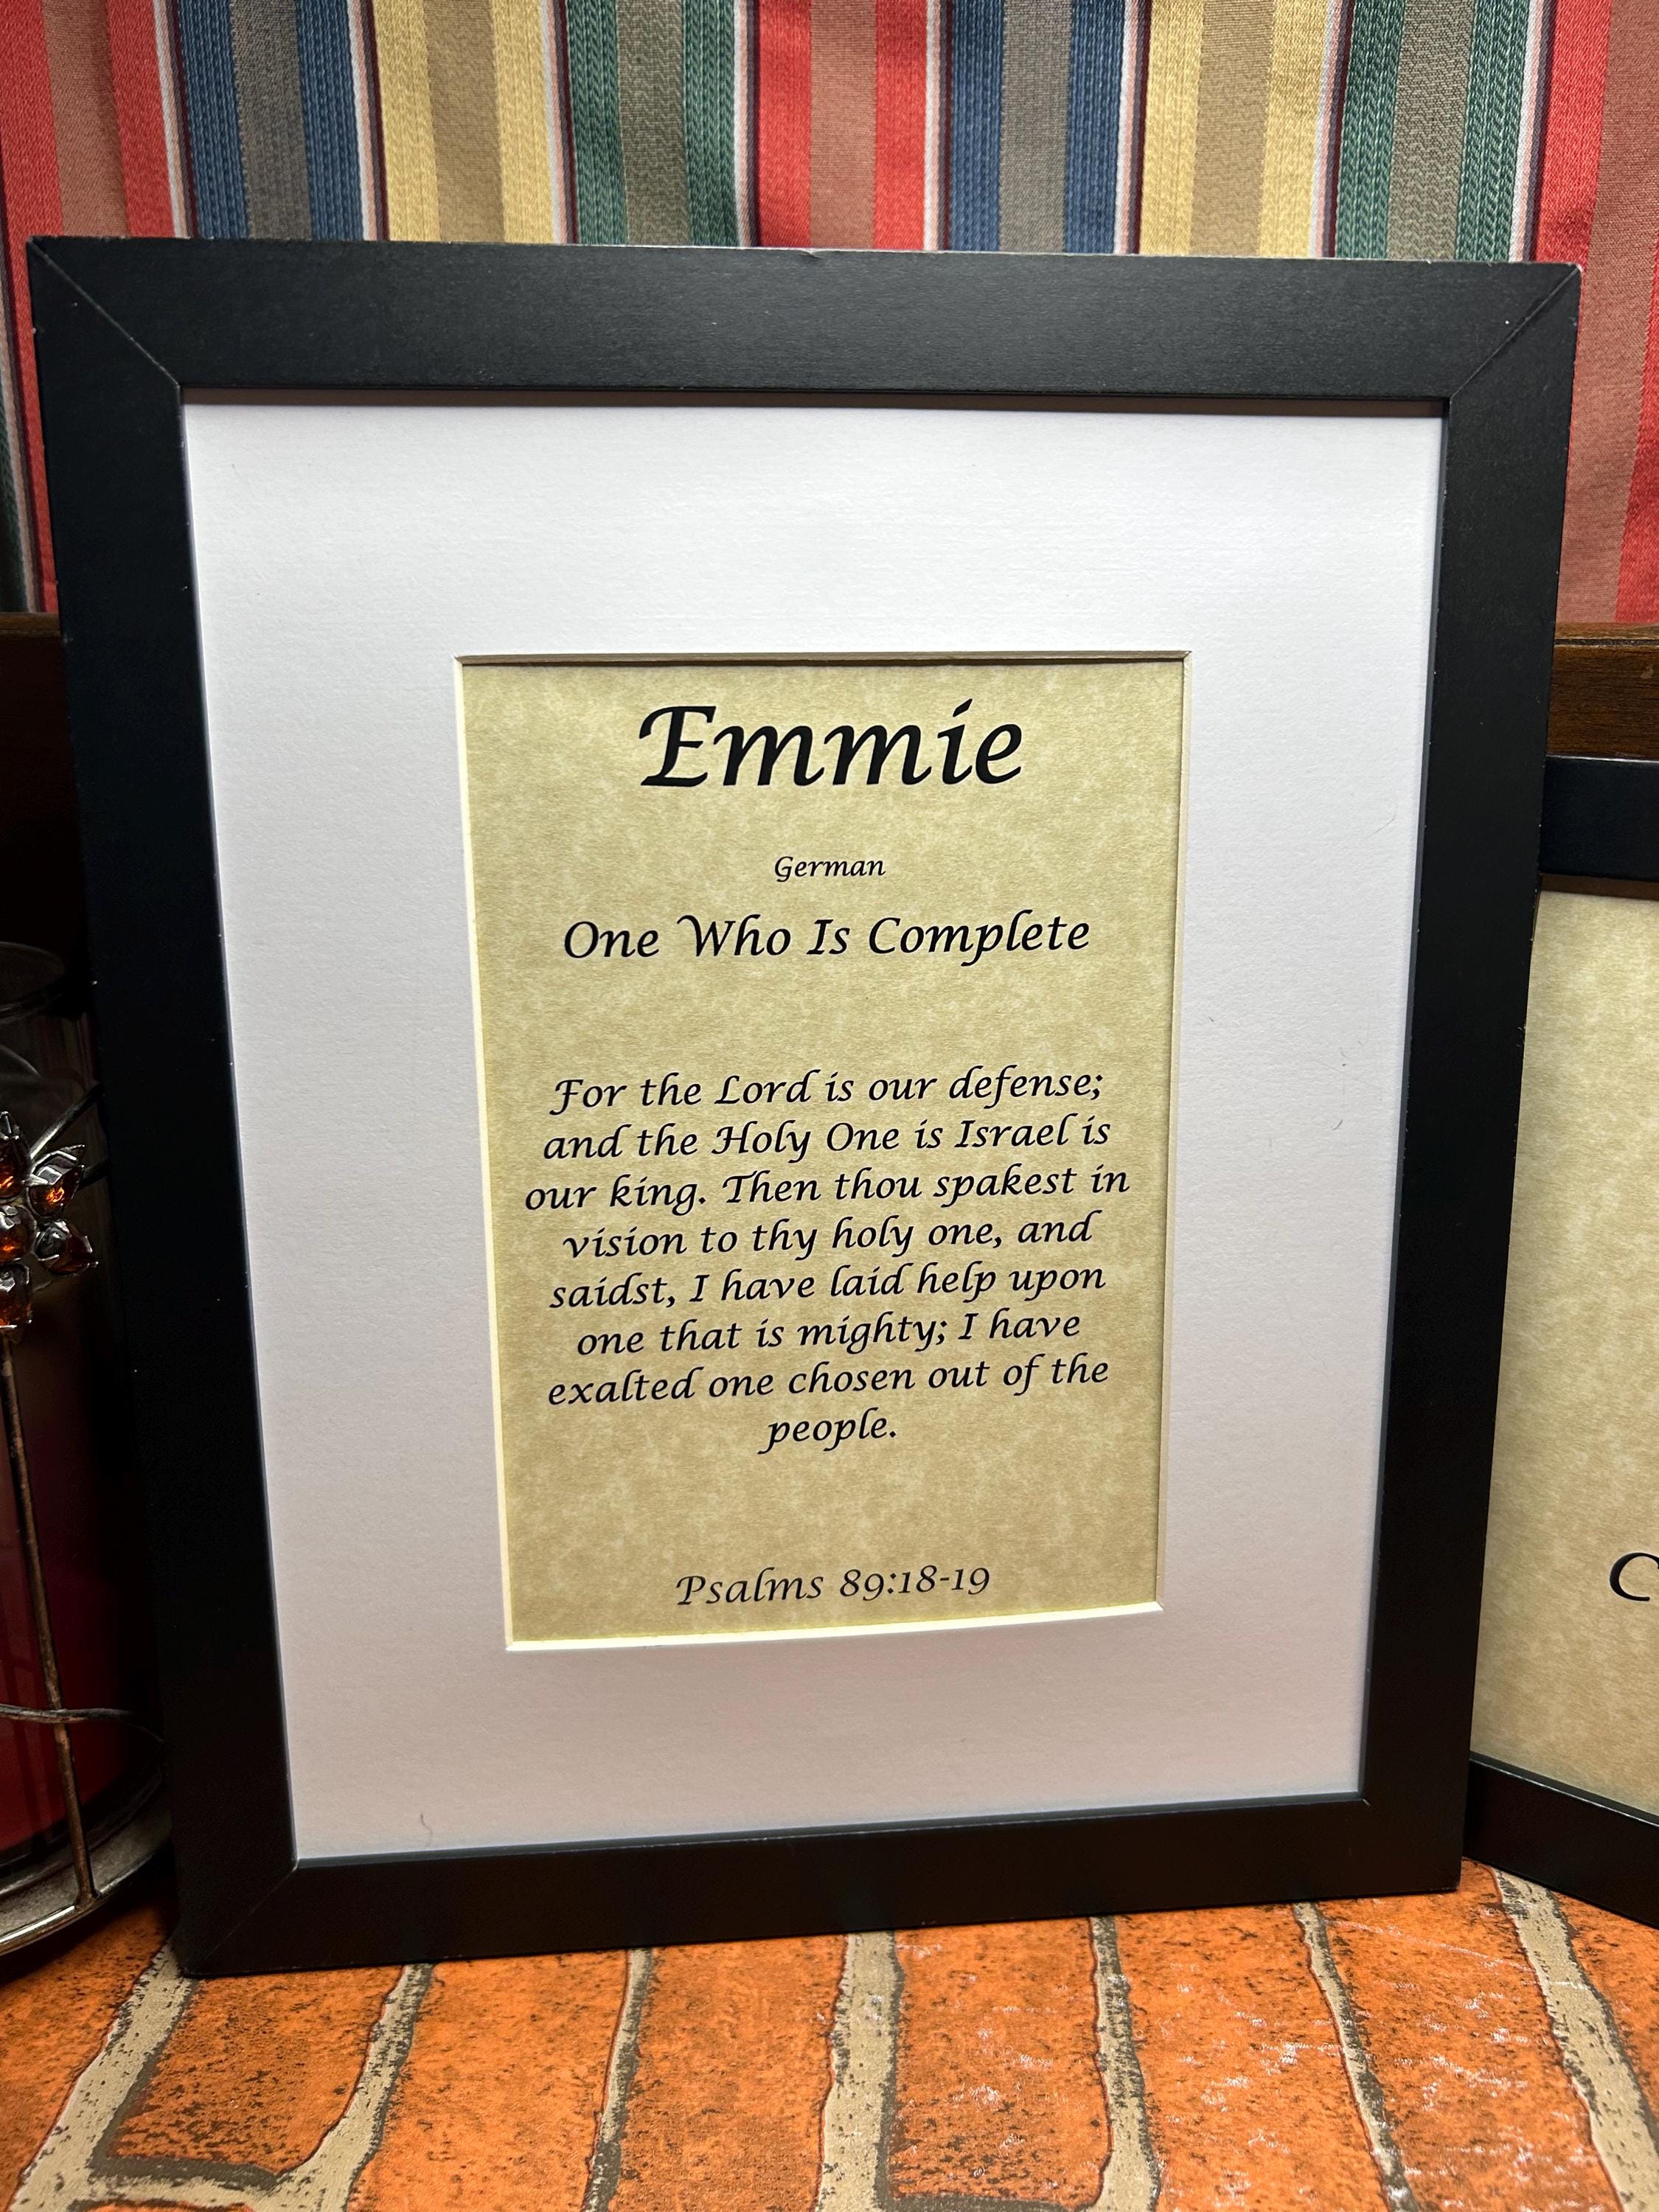 Emmie
German
One Who Is Complete
For the Lord is our defense;
and the Holy One is Israel is
our king. Then thou spakest in
vision to thy holy one, and
saidst, I have laid help upon
one that is mighty; I have
exalted one chosen out of the
people.
Psalms 89:18-19